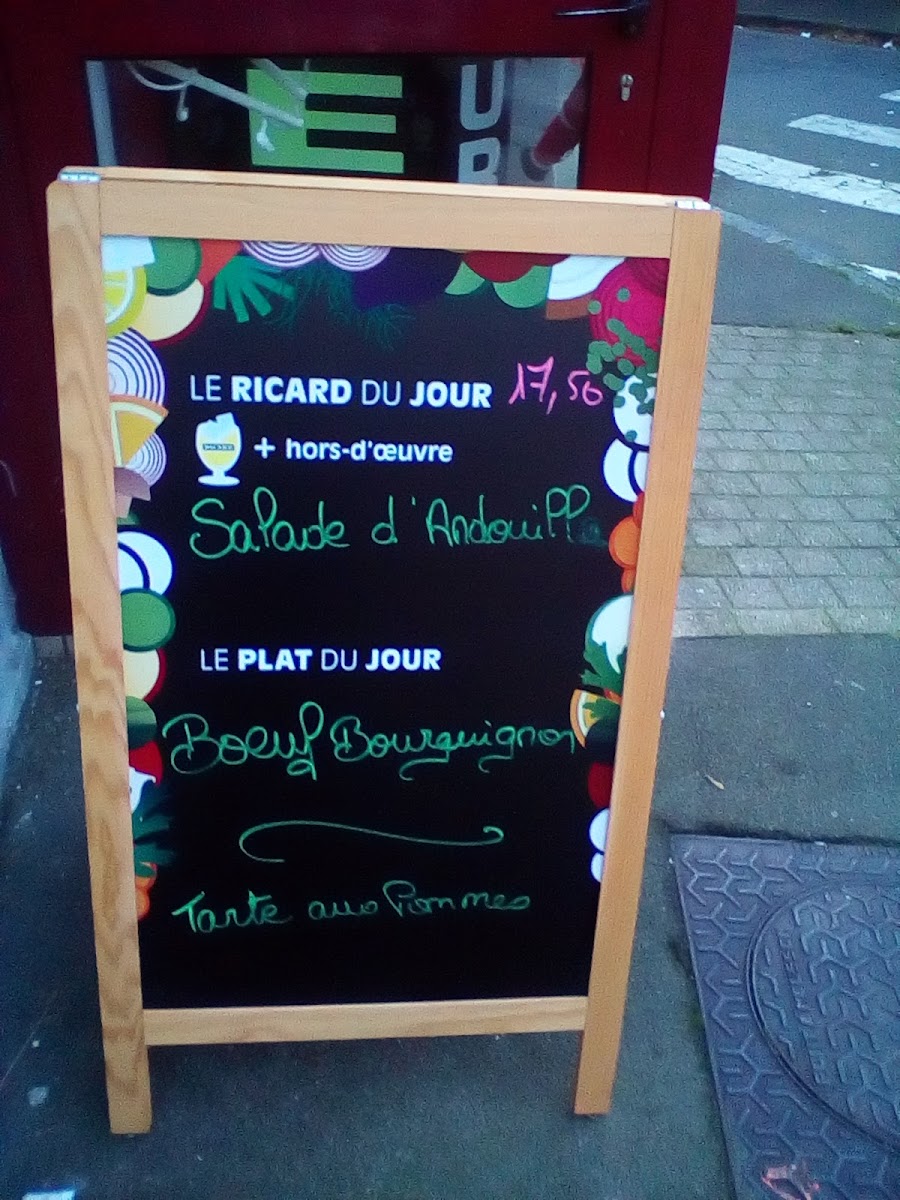 E
UR
LE RICARD DU JOUR 17,50
+ hors-d'œuvre
Salade d'Andouille
LE PLAT DU JOUR
Boeuf Bourguignon
Tarte aux Pommes